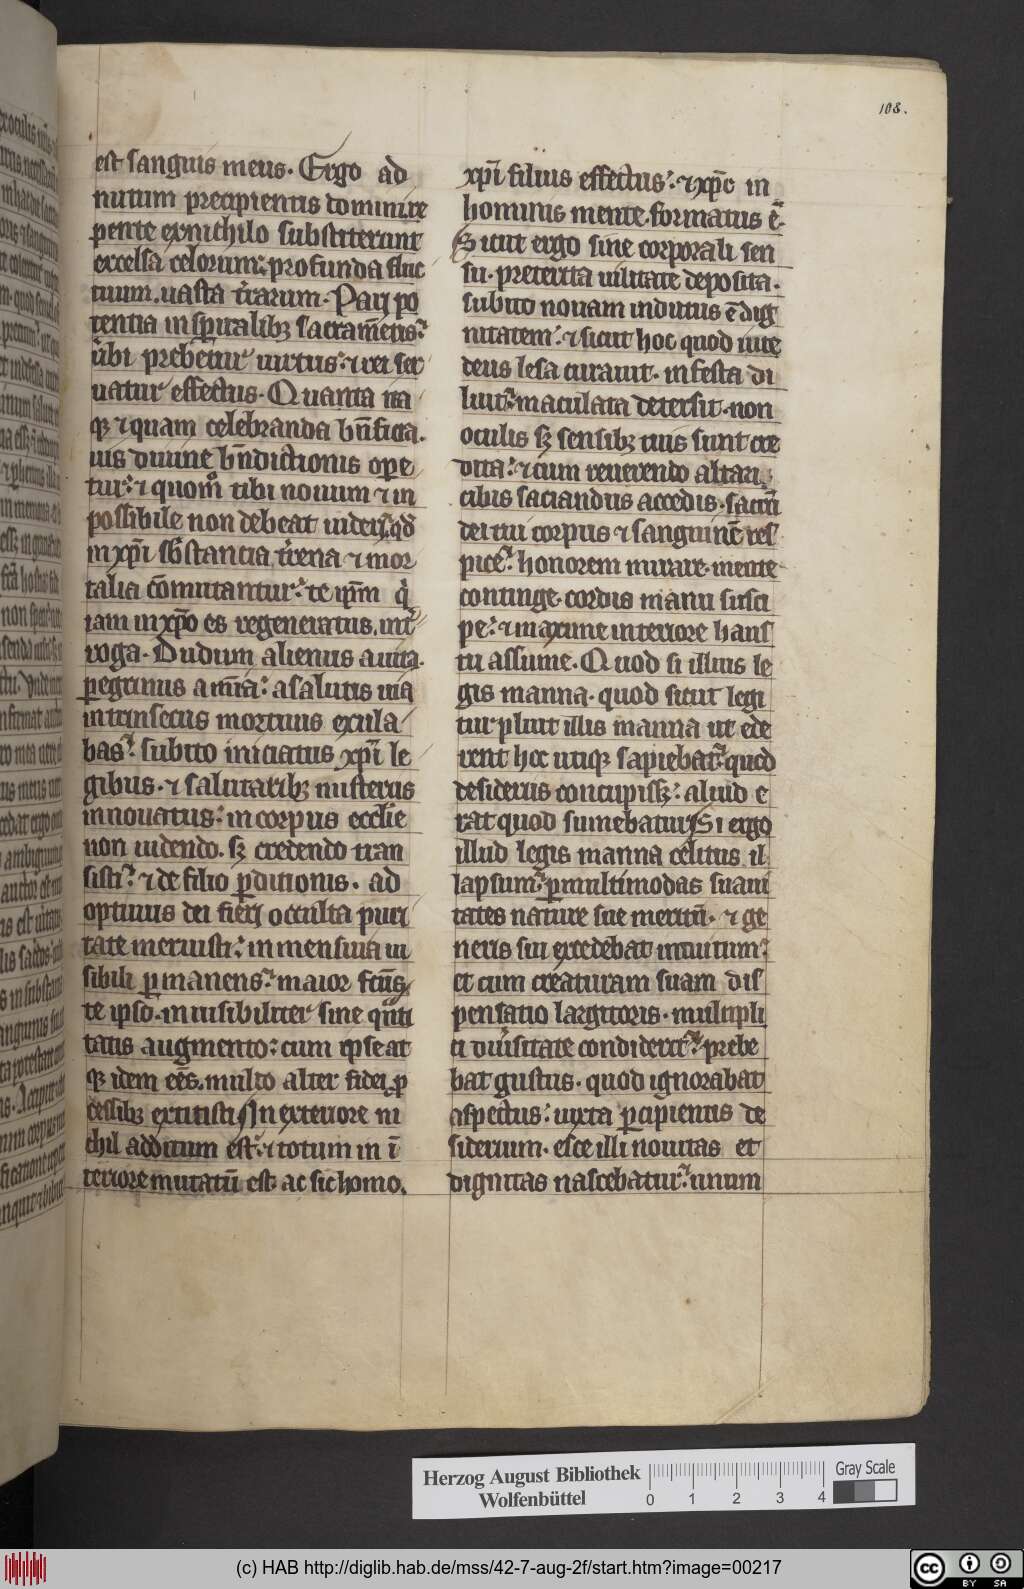 108.
est sanguis meus. Ergo ad
nutum precipientis domini. re
pente exnichilo substiterunt
excelsa celorum: profunda fluc
tuum. uasta t̄rarum. Pari po
tentia in sp̄iralibꝫ sacram̄etis:
ūbi prebetur uirtus: ⁊ rei ser
uatur effectus. Quanta ita
qꝫ ⁊ quam celebranda bn̄ficia.
uis diuine bn̄dictionis ope
tur: ⁊ quom̊ tibi nouum ⁊ in
possibile non debeat uideri. qd̄
in xp̄i sb̄stancia t̄rena ⁊ mor
talia cōmutantur: te ip̄m q̇
iam in xp̄o es regeneratus. int̄
roga. Dudum alienus a uita.
ꝑegrinus a mīa: a salutis uia
intrinsecus mortuus exula
bas: subito iniciatus xp̄i le
gibus. ⁊ salutaribꝫ misteriis
innouatus: in corpus eccl̄ie
non uidendo. sꝫ credendo tran
sisti: ⁊ de filio ꝑditionis. ad
optiuus dei fieri occulta puri
tate meruisti: in mensura ui
sibili ꝑmanens: maior fc̄us
te ipso. inuisibiliter sine qn̄ti
tatis augmento: cum ipse at
qꝫ idem eēs. multo alter fidei ꝓ
cessibꝫ extitisti. In exteriore ni
chil additum est: ⁊ totum in ī
teriore mutatū est. ac sic homo.
xp̄i filius effectus: ⁊ xp̄c in
hominis mente. formatus ē.
Sicut ergo sine corporali sen
su. preterita uilitate deposita.
subito nouam indutus ē dig
nitatem: ⁊ sicut hoc quod in te
deus lesa curauit. infesta di
luit: maculata detersit. non
oculis sꝫ sensibꝫ tuis sunt cre
dita: ⁊ cum reuerendo altari.
cibus saciandus accedis. sacrū
dei tui corpus ⁊ sanguinē res
pice: honorem mirare. mente
continge. cordis manu susci
pe: ⁊ maxime interiore haus
tu assume. Quod si illius le
gis manna. quod sicut legi
tur pluit illis manna ut ede
rent hoc utiqꝫ sapiebat: quod
desideriis concupissꝫ: aliud e
rat quod sumebatur. Si ergo
illud legis manna celitus il
lapsum: ꝑ multimodas suaui
tates nature sue meritū. ⁊ ge
neris sui excedebat intuitum:
et cum creaturam suam dis
pensatio largitoris. multipli
ci diūsitate condiderit: prebe
bat gustus. quod ignorabat
aspectus: iuxta ꝑcipientis de
siderium. esce illi nouitas et
dignitas nascebatur: unum
Herzog August Bibliothek
Wolfenbüttel
0 1 2 3 4
Gray Scale
(c) HAB http://diglib.hab.de/mss/42-7-aug-2f/start.htm?image=00217
cc BY SA